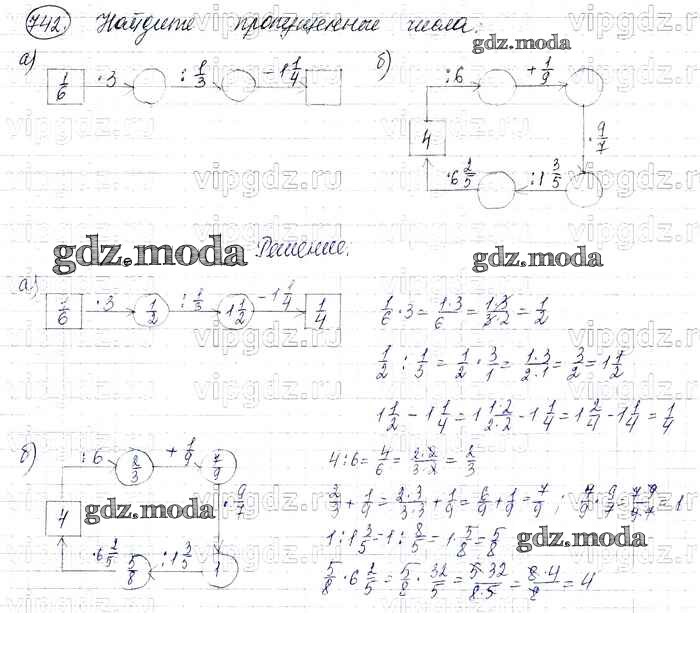 742. Найдите пропущенные числа:
gdz.moda
а) 1/6 ·3 : 1/3 -1 1/4
б) :6 +1/9
4 · 9/7
·6 2/5 :1 3/5
vipgdz.ru vipgdz.ru vipgdz.ru
gdz.moda Решение. gdz.moda
а) 1/6 ·3 1/2 : 1/3 1 1/2 -1 1/4 1/4
1/6 · 3 = 1·3/6 = 1·3/3·2 = 1/2
1/2 : 1/3 = 1/2 · 3/1 = 1·3/2·1 = 3/2 = 1 1/2
1 1/2 - 1 1/4 = 1 1·2/2·2 - 1 1/4 = 1 2/4 - 1 1/4 = 1/4
б) :6 2/3 +1/9 7/9
4 gdz.moda · 9/7
·6 2/5 5/8 :1 3/5 1
4:6 = 4/6 = 2·2/3·2 = 2/3
2/3 + 1/9 = 2·3/3·3 + 1/9 = 6/9 + 1/9 = 7/9 ; 7/9 · 9/7 = 7·9/9·7 = 1
1:1 3/5 = 1: 8/5 = 1· 5/8 = 5/8
gdz.moda
5/8 · 6 2/5 = 5/8 · 32/5 = 5·32/8·5 = 8·4/8 = 4